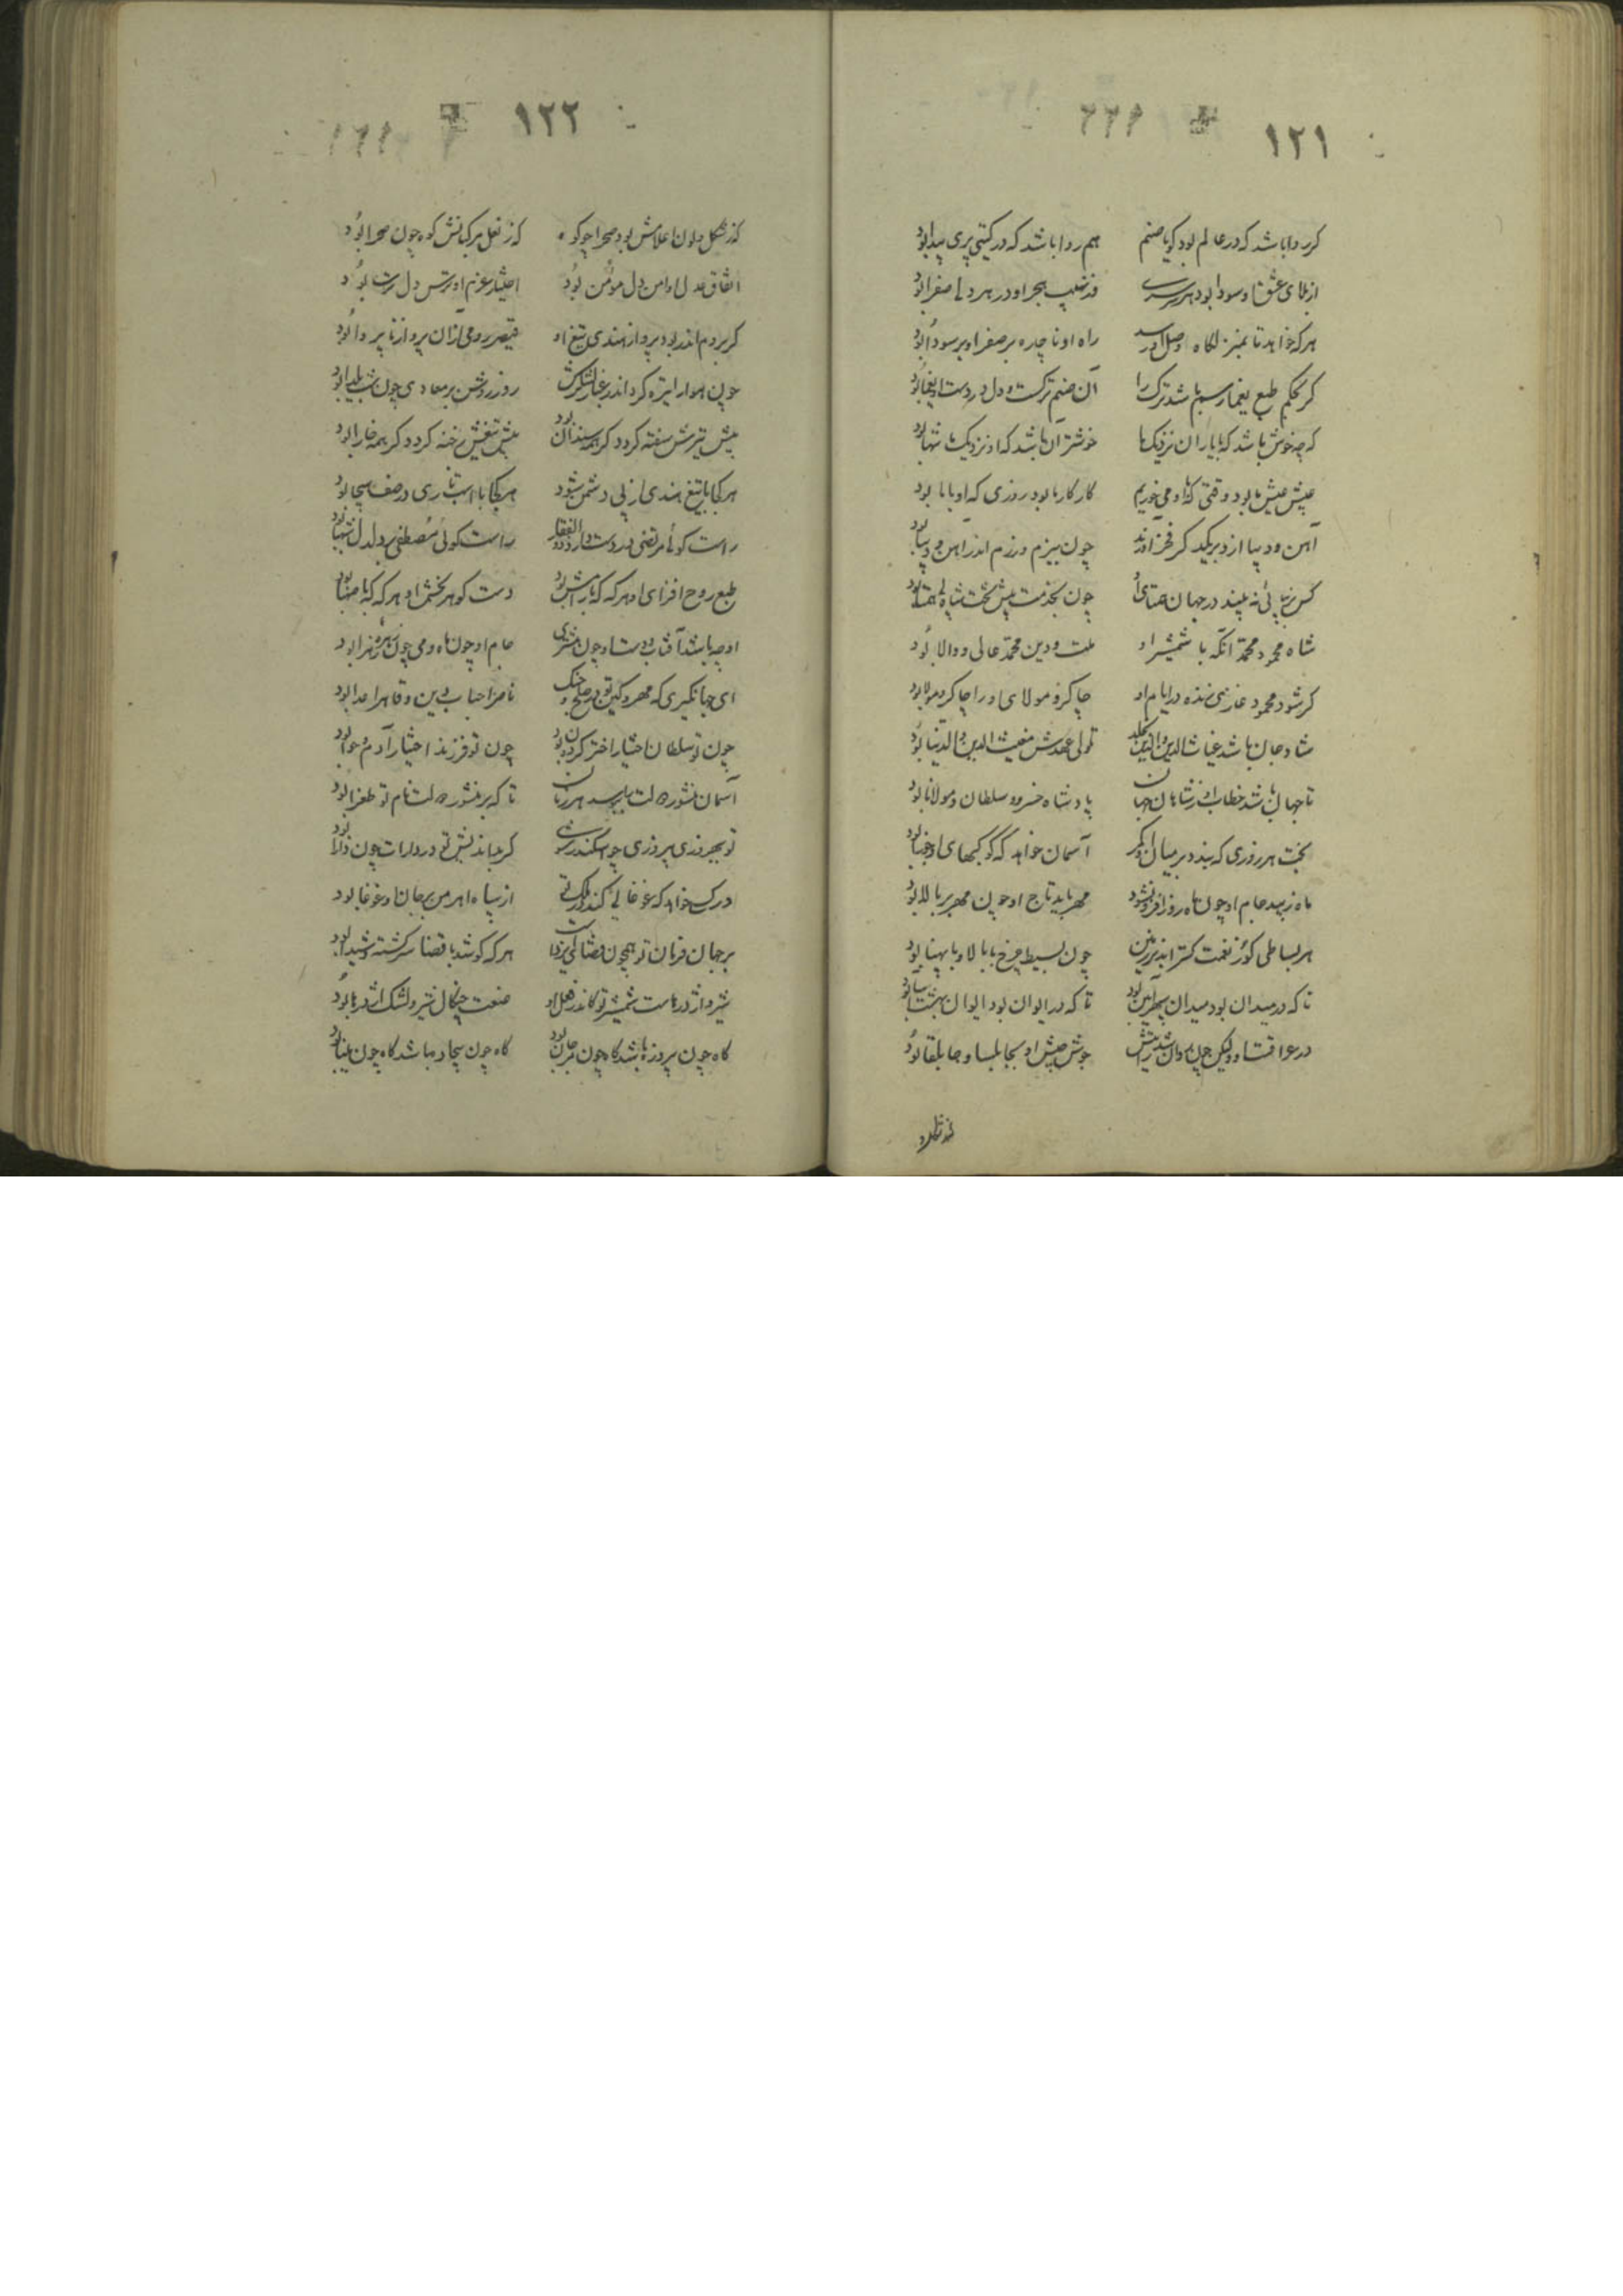 ۱۲۱
کر روا باشد که در عالم بود کویا صنم هم روا باشد که در کیتی پری پیدا بود
از بلای عشق او سودا بود در هر سری وز نهیب هجر او در هر دلی صفرا بود
هر که خواهد تا بمنزلگاه وصل او رسد راه او ناچاره بر صفرا و بر سودا بود
کر بحکم طبع یغما رسم باشد ترک را آن صنم ترکست و دل در دست او یغما بود
که چه خوش باشد که با یاران نزدیک خوشتر آن باشد که او نزدیک تنها بود
عیش عیش ما بود وقتی که با او می خوریم کار کار ما بود روزی که او با ما بود
آهن و دیبا از و بر یکدیگر فخر آورند چون ببزم و رزم اندر آهن و دیبا بود
کس نه پائی نه بیند در جهان همتای او چون بخدمت پیش تخت شاه بی همتا بود
شاه محمود محمد آنکه با شمشیر او ملت و دین محمد عالی و والا بود
کر شود محمود غازی زنده در ایام او چاکر و مولای او را چاکر و مولا بود
شادمان باشد غیاث الدین والدنیا تا ولی عهدش مغیث الدین والدنیا بود
تا جهان باشد خطاب او ز شاهان جهان پادشاه خسرو و سلطان و مولانا بود
بخت هر روزی که بندد بر میان او کمر آسمان خواهد که کوکبهای او جوزا بود
ماه زیبد جام او چون ماه روز افزون شود مهر باید تاج او چون مهر بر بالا بود
هر بساطی کو ز نعمت کستراند بر زمین چون بسیط چرخ با بالا و با پهنا بود
تا که در میدان بود میدان سپهر آیین بود تا که در ایوان بود ایوان بهشت آسا بود
در عراقست او ولیکن چون روان شد رایتش جوش جیش او بجابلسا و جابلقا بود
۱۲۲
کز شکل و لون اعلامش بود صحرا چو کوه که ز نعل مرکبانش کوه چون صحرا بود
اتفاق عدل او امن دل مؤمن بود اختیار عزم او ترس دل ترسا بود
کر بروم اندر بود پرواز هندی تیغ او قیصر رومی از آن پرواز نا پروا بود
چون هوا را تیره کرداند غبار لشکرش روز روشن بر معادی چون شب یلدا بود
پیش تیرش سفته کردد کر همه سندان بود پیش تیغش رخنه کردد کر همه خارا بود
هر کجا با تیغ هندی از پی دشمن شود هر کجا با اسب تازی در صف هیجا بود
راست کوئی مرتضی در دست دارد ذوالفقار راست کوئی مصطفی بر دلدل شهبا بود
طبع روح افزای او هر که که با رامش بود دست کوهر بخش او هر که که با صهبا بود
او چو باشد آفتاب و دست او چون مشتری جام او چون ماه و می چون زهره زهرا بود
ای جهانکیری که مهر و کین تو در صلح و جنک ناصر احباب دین و قاهر اعدا بود
چون تو سلطان اختیار اختر کردون بود چون تو فرزند اختیار آدم و حوا بود
آسمان منشور دولت بایدت هر زمان تا که بر منشور دولت نام تو طغرا بود
تو بهروزی و پیروزی چو اسکندر شوی کر بداندیش تو در دارات چون دارا بود
در که خواهد که غوغائی کند در ملک تو از سپاه اهرمن بر جان او غوغا بود
بر جهان فرمان تو همچون قضای ایزدست هر که کوشد با قضا سرکشته و شیدا بود
شیر و اژدرهاست شمشیر تو کاندر فعل او صنعت چنکال شیر و لشک اژدرها بود
کاه چون پیروزه باشد کاه چون مرجان بود کاه چون بیجاده باشد کاه چون مینا بود